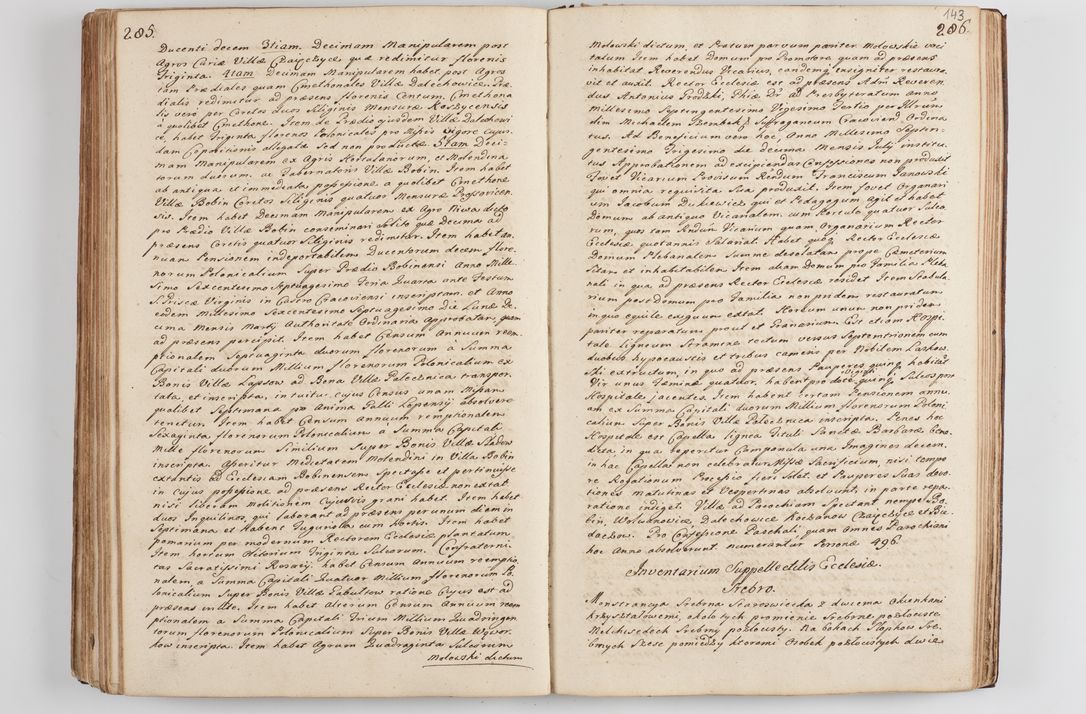 285.
Ducenti decem 3tiam. Decimam Manipularem post
Agros Curiæ Villæ Chaiczyce, quæ redimitur florenis
Triginta. 4tam Decimam Manipularem habet post Agros
tam Prædiales quam Cmethonales Villæ Dalechowice, Præ
dialis redimitur ad præsens florenis Centum, Cmethona
lis vero per Coretos duos Siliginis Mensuræ Koszycensis
à quolibet Cmethone. Item de Prædio ejusdem Villæ Dalechowi
cæ, habet Triginta florenos Polonicales pro Missis vigore cujus
dam Compositionis allegatæ sed non productæ. 5tam Deci-
mam Manipularem ex Agris Hortulanorum, et Molendina
torum duorum, ac Tabernatoris Villæ Bobin. Item habet
ab antiqua et immediata possessione a quolibet Cmethone
Villæ Bobin Coretos Siliginis quatuor Mensuræ Proszovicen
sis. Item habet Decimam Manipularem ex Agro Niwa dicto
pro Prædio Villæ Bobin conseminari solito quæ Decima ad
præsens Coretis quatuor Siliginis redimitur. Item habet an
nuam Pensionem indeportabilem Ducentorum decem flore-
norum Polonicalium Super Prædio Bobinensi Anno Mille
simo Sexcentesimo Septuagesimo Feria Quarta ante Festum
S. Priscæ Virginis in Castro Cracoviensi inscriptam, et Anno
eodem Millesimo Sexcentesimo Septuagesimo Die Lunæ De
cima Mensis Martij Authoritate Ordinaria Approbatam, quam
ad præsens percipit. Item habet Censum Annuum reem
ptionalem Septuaginta duorum florenorum à Summa
Capitali duorum Millium florenorum Polonicalium ex
Bonis Villæ Lapszow ad Bona Villæ Palecznica transpor
tata, et inscripta, intuitu cujus Census unam Missam
qualibet Septimana pro Anima Palli Lapszansij absolvere
tenetur. Item habet Censum Annuum reemptionalem
Sexaginta florenorum Polonicalium à Summa Capitali
Mille florenorum Similium Super Bonis Villæ Sladow
inscripta. Asseritur Medietatem Molendini in Villa Bobin
extantis ad Ecclesiam Bobinensem Spectasse et pertinuisse
in cujus possessione ad præsens Rector Ecclesiæ non extat
nisi liberam Molitionem Cujusvis grani habet. Item habet
duos Inquilinos, qui laborant ad præsens per unum diem in
Septimana, et habent Tuguriola cum hortis. Item habet
pomarium per modernum Rectorem Ecclesiæ plantatum.
Item hortum Olitorium Triginta Sulcorum. Confraterni
tas Sacratissimi Rosarij habet Censum Annuum reemptio
nalem, a Summa Capitali Quatuor Millium florenorum Po
lonicalium Super Bonis Villæ Gabultow ratione cujus est ad
præsens in lite. Item habet Alterum Censum Annuum reem
ptionalem a Summa Capitali Trium Millium Quadringen
torum florenorum Polonicalium Super Bonis Villæ Wywor
kow inscripta. Item habet Agrum Quadraginta Sulcorum
Molowski dictum
143
286.
Molowski dictum, et Pratum parvum pariter Molowskie voci
tatum. Item habet Domum pro Promotore quam ad præsens
inhabitat Reverendus Vicarius, eandemq insigniter restaura
vit et auxit. Rector Ecclesiæ est ad præsens Adm Reveren
dus Antonius Grodzki, Phiæ Dr ad Presbyteratum anno
Millesimo Septingentesimo Vigesimo Tertio per Illrum
olim Michaëlem Szembek Suffraganeum Cracovien Ordina
tus. Ad Beneficium vero hoc, Anno Millesimo Septin-
gentesimo Trigesimo die decima Mensis Julij institu
tus Approbationem ad excipiendas Confessiones non produxit
Fovet Vicarium Provisum Rndum Franciscum Janowski
qui omnia requisita sua produxit. Item fovet Organari
um Jacobum Dukiewicz qui et Pedagogum agit et habet
Domum ab antiquo Vicarialem, cum Hortulo quatuor Sulco
rum, quos tam Rndum Vicarium quam Organarium Rector
Ecclesiæ quotannis Salariat. Habet quoq Rector Ecclesiæ
Domum Plebanalem Summe desolatam prope Cæmeterium
Sitam et inhabitabilem. Item aliam Domum pro Familia Pleba
nali in qua ad præsens Rector Ecclesiæ residet. Item Stabula
rium post Domum pro Familia non pridem restauratum
in quo equile exiguum extat. Horreum unum non pridem
pariter reparatum prout et Granarium. Est etiam Hospi
tale ligneum Stramine tectum versus Septentrionem cum
duobus hypocaustis et tribus cameris per Nobilem Laskow
ski extructum, in quo ad præsens Pauperes quinq habitat
Vir unus Fæminæ quatuor, habent pro dote viginti quinq Sulcos pro
Hospitale jacentes. Item habent certam Pensionem annu
am ex Summa Capitali duorum Millium florenorum Poloni
calium Super Bonis Villæ Palecznica inscripta. Penes hoc
Hospitale est Capella lignea Tituli Sanctæ Barbaræ bene
dicta in qua reperitur Campanula una Imagines decem.
in hac Capella non celebratur Missæ Sacrificium, nisi tempo
re Rogationum Processio fieri Solet. et Pauperes Suas devo
tiones matutinas et Vespertinas absolvunt, in parte repa
ratione indiget. Villæ ad Parochiam Spectant nempe Bo-
bin, Wolwanowice, Dalechowice Kochanow Chaiczyce et Bu
daczow. Pro Confessione Paschali quam omnes Parochiani
hoc Anno absolverunt numerantur Personæ 496.
Inventarium Suppellectilis Ecclesiæ.
Srebro.
Monstrancya Srebrna Staroswiecka z dwiema Okienkami
krzyształowemi, około tych promienie Srebrne pozłociste
Melchisedech Srebrny pozłocisty. Na bokach Słupkow Sre-
brnych Szesc pomiedzy ktoremi Osobek pozłocistych dwie